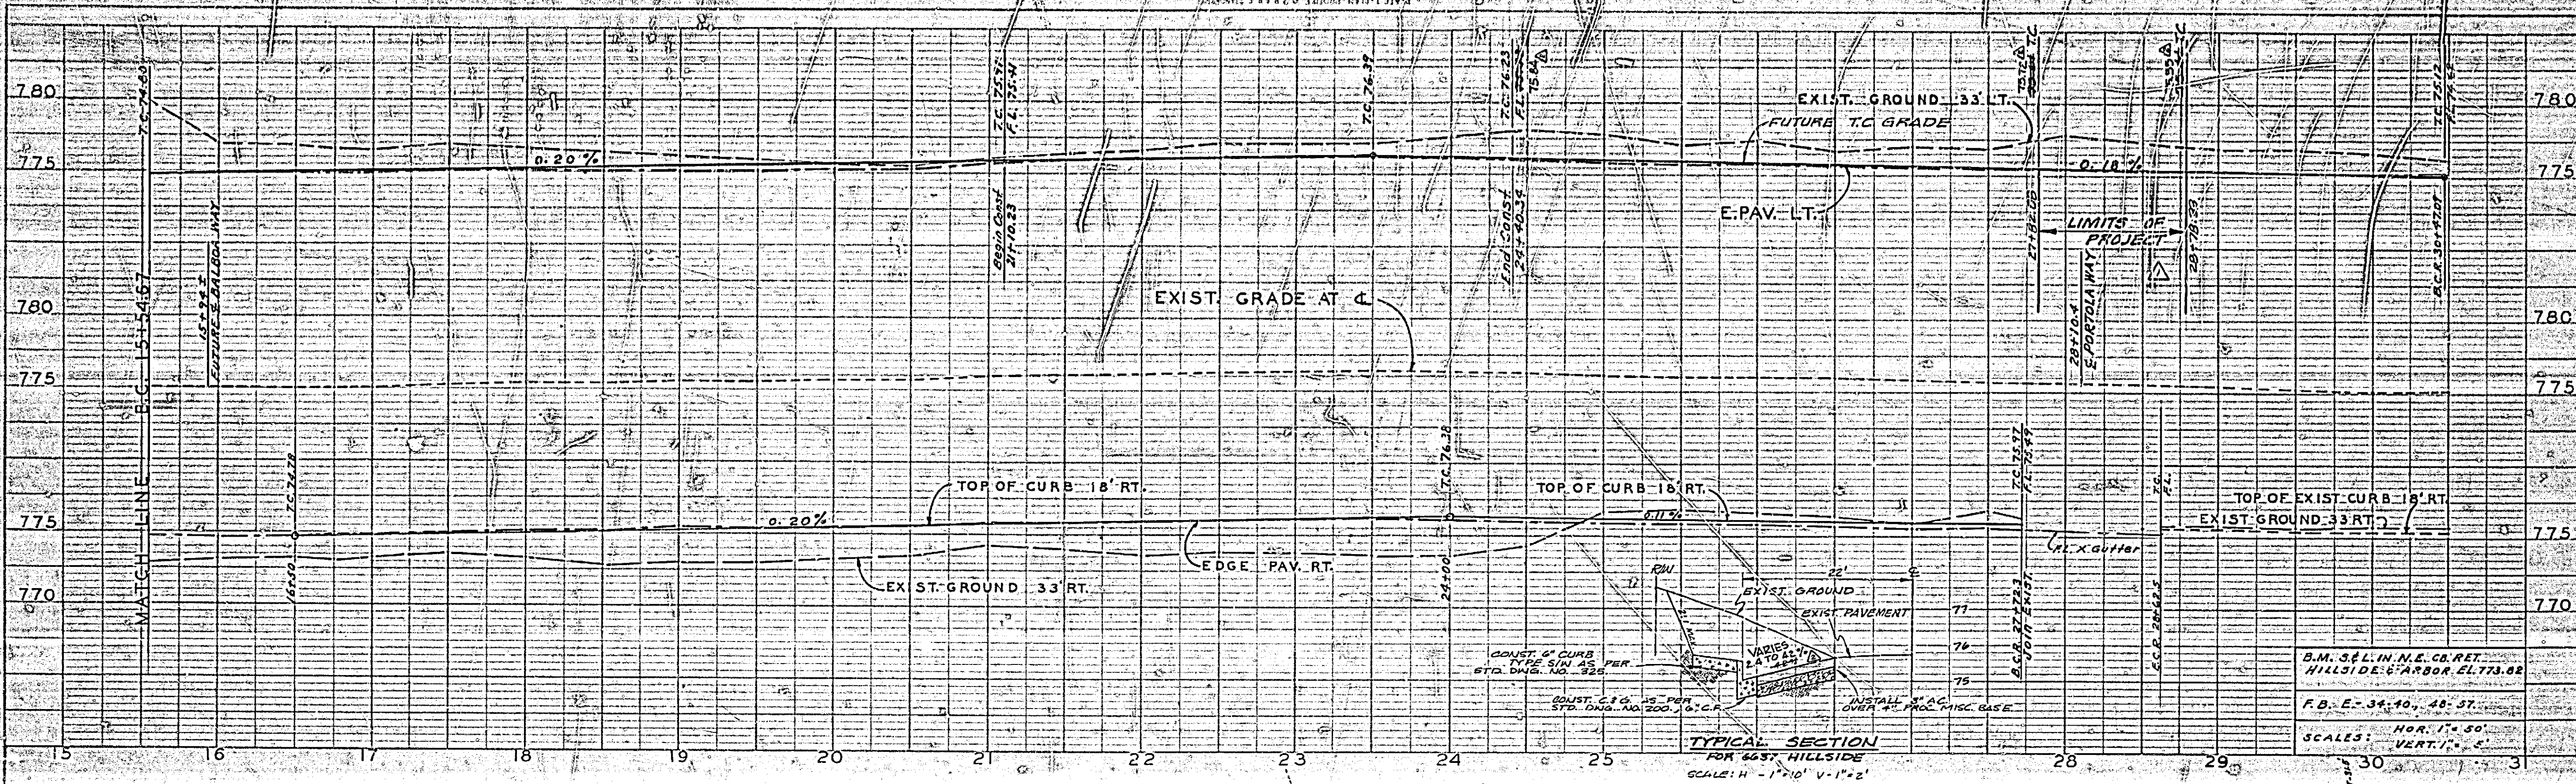 780
775
780
775
775
770
780
775
780
775
775
770
T.C. 74.80
MATCH LINE B.C. 15+54.67
15+94±
FUTURE ℄ BALBOA WAY
0.20%
T.C. 75.91
F.L. 75.41
Begin Const
21+10.23
T.C. 76.39
T.C. 76.23
F.L.
75.84
End Const
24+40.34
EXIST. GROUND 33' LT.
FUTURE T.C. GRADE
E. PAV. LT.
T.C.
27+82.05
-0.18%
LIMITS OF
PROJECT
28+10.4
℄ PORTOLA WAY
T.C.
28+78.33
T.C. 75.12
F.L. 74.62
B.C.R. 30+47.07
EXIST. GRADE AT ℄
T.C. 74.78
16+50
TOP OF CURB 18' RT.
0.20%
EDGE PAV. RT.
EXIST. GROUND 33' RT.
T.C. 76.38
24+00
TOP OF CURB 18' RT.
0.11%
T.C. 75.97
F.L. 75.49
B.C.R. 27+72.3
JOIN EXIST.
F.L. X GUTTER
T.C.
F.L.
E.C.R. 28+62.5
TOP OF EXIST CURB 18' RT.
EXIST GROUND 33 RT.
R/W
22'
℄
EXIST. GROUND
EXIST PAVEMENT
2:1 MAX
VARIES
77
76
75
CONST. 6" CURB
TYPE S/W AS PER
STD. DNG. NO. 325
CONST. C & G AS PER
STD. DNG. NO. 200, 6" C.F.
INSTALL 3" A.C.
OVER 4" PROC. MISC. BASE
TYPICAL SECTION
FOR 6657 HILLSIDE
SCALE: H - 1"=10' V - 1"=2'
B.M. S & L. IN N.E. CB. RET.
HILLSIDE & ARBOR EL. 773.82
F.B. E-34-40, 48-57.
SCALES: HOR. 1"=50'
VERT. 1"=5'
15 16 17 18 19 20 21 22 23 24 25 26 27 28 29 30 31